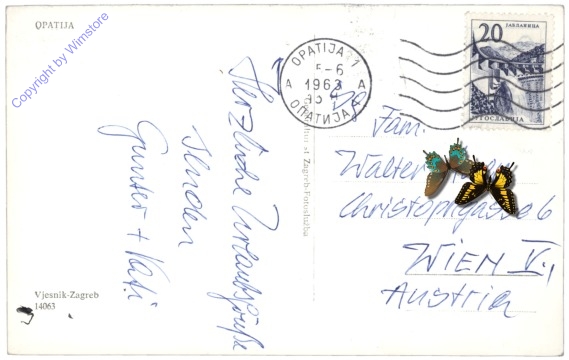 OPATIJA
Copyright by Wimstore
Herzliche Urlaubsgrüße
senden
Gunter + Kati
Vjesnik-Zagreb
14063
Zagreb-Fotoslužba
OPATIJA 1
A 5-6 A
1963
ОПАТИЈА
20
ЈАВЛАНИЦА
JUGOSLAVIJA
Fam.
Walter
Christophgasse 6
WIEN V.,
Austria